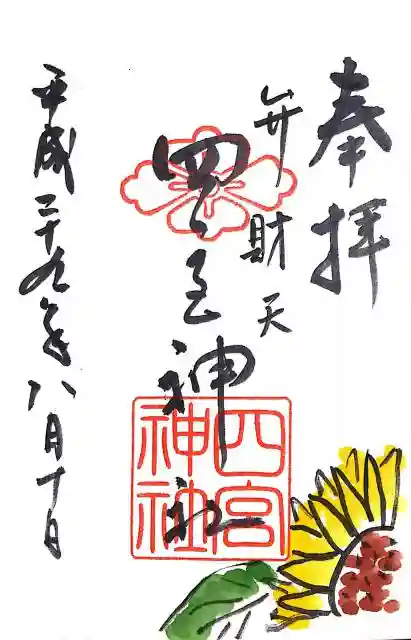 奉拝
弁財天
四宮神社
四宮
神社
平成二十九年八月十日